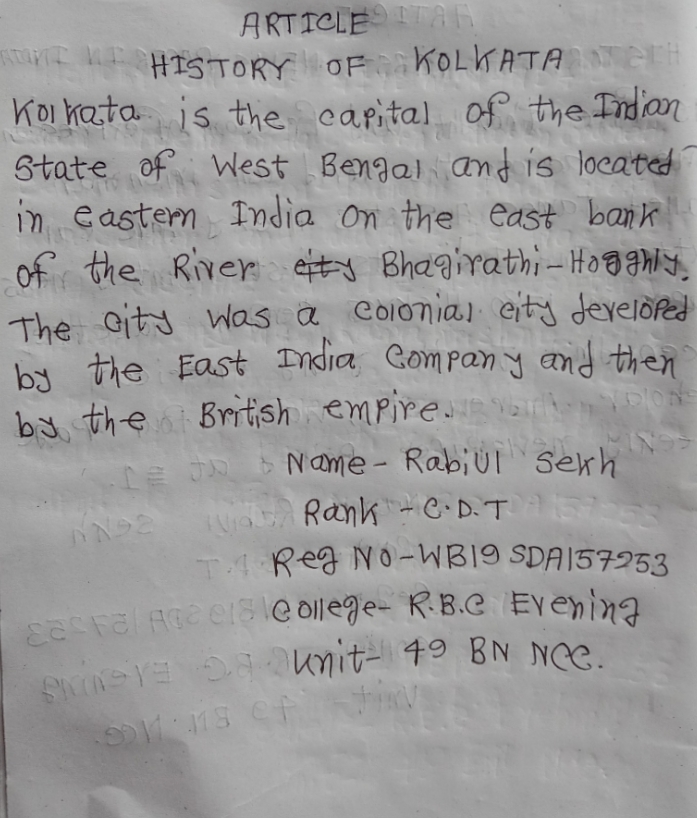 ARTICLE
HISTORY OF KOLKATA
Kolkata is the capital of the Indian
State of West Bengal and is located
in eastern India on the east bank
of the River city Bhagirathi-Hooghly.
The city was a colonial city developed
by the East India Company and then
by the British empire.
Name- Rabiul Sekh
Rank - C.D.T
Reg No-WB19SDA157253
College- R.B.C Evening
Unit- 49 BN NCC.